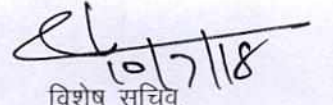 10/7/18
विशेष सचिव